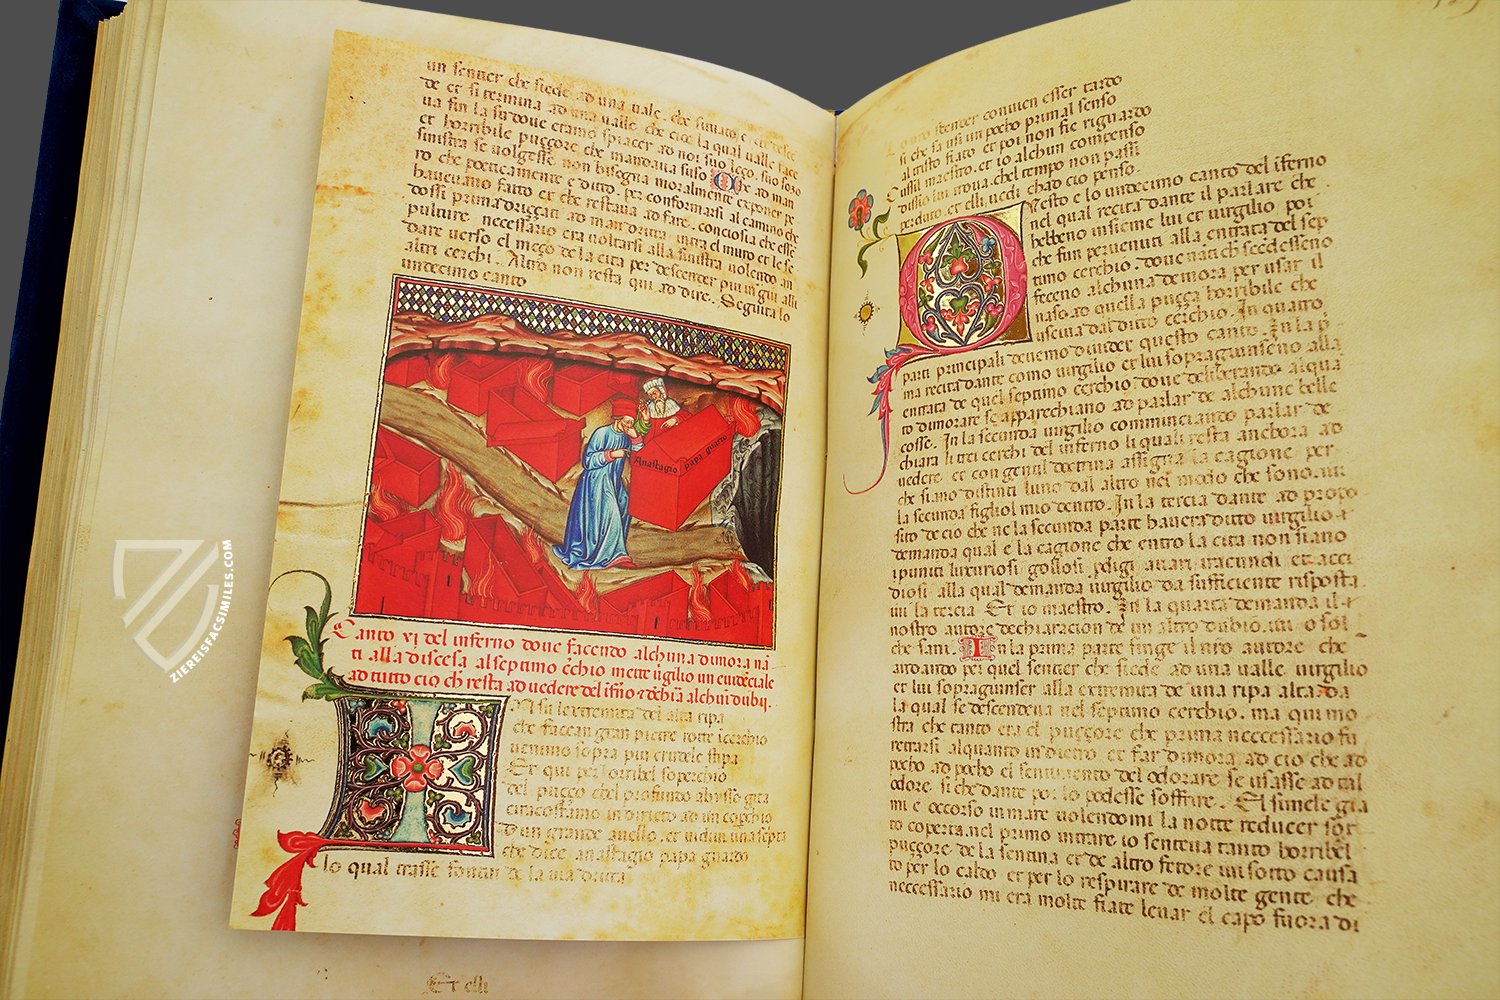 un sentier che siede ad una vale. che
de et si termina ad una valle che
va fin la su dove
et horribile puzzore che mandava suso
sinistra se volgesse non bisogna moralmente exponer pe
ro che poeticamente e ditto. per conformarsi al camino che
havevano fatto et che restava ad fare. conciosia che esse
dossi prima drizzati ad man dritta intra el muro et le se
pulture. necessario era voltarsi alla sinistra volendo an
dare verso el mezo de la cita per descender piu in giu alli
altri cerchi. Altro non resta qui ad dire. Seguita lo
undecimo canto
Anastagio papa guardo
Canto xi del inferno dove facendo alchuna dimora
ti alla discesa al septimo
ad tutto cio ch resta ad vedere del
In su l extremita del alta ripa
che faccan gran pietre rotte
venimo sopra piu crudele stipa
Et qui per l orribel soperchio
del puzzo chel profundo abysso gita
ci racostamo in dirieto ad un copchio
D un grande avello. et
che dice. anastagio papa guardo
lo qual trasse fotin de la via dritta
Et elli
Lo nostro scender convien esser tardo
si che s a usi un pocho prima l senso
al tristo fiato et poi non fie riguardo
Cussi l maestro. et io alchun compenso
dissio lui trova. chel tempo non passi
perduto. et elli. vedi ch ad cio penso.
Questo e lo undecimo canto del iferno
nel qual recita dante il parlare che
hebbeno insieme lui et virgilio poi
che fun pervenuti alla entrata del sep
timo cerchio. dove
feceno alchuna demora per usar il
naso ad quella puzza horribile che
usciva dal ditto cerchio. In quatro
parti principali devemo divider questo canto. In la p
ma recita dante como virgilio et lui sopragiunseno alla
entrata de quel septimo cerchio dove deliberando alqua
to dimorare se apparechiano ad parlar de alchune belle
cosse. In la secunda virgilio comminciando parlar de
chiara li tre cerchi del inferno li quali resta anchora ad
vedere. et con gentil doctrina assigna la cagione per
che siano distinti luno dal altro nel modo che sono. ivi
la secunda figliol mio dentro. In la tercia dante ad propo
sito de cio che ne la secunda parte havera ditto virgilio
demanda qual e la cagione che entro la cita non siano
i puniti luxuriosi golosi pdigi avari iracundi et acci
diosi. alla qual demanda virgilio da sufficiente risposta
ivi la tercia. Et io maestro. In la quarta demanda il
nostro autore dechiaracion de un altro dubio. ivi o sol
che sani. In la prima parte finge il nro autore che
andando per quel sentier che siede ad una valle virgilio
et lui sopragiunser alla extremita de una ripa alta da
la qual se descendeva nel septimo cerchio. ma qui mo
stra che tanto era el puzzore che prima neccessario fu
retrarsi alquanto indietro. et far dimora ad cio che ad
pocho ad pocho el sentimento del odorare se usasse ad tal
odore. si che dante poi lo podesse soffrire. El simele gia
mi e occorso in mare volendomi la notte reducer sot
to coperta. nel primo intrare io senteva tanto horribel
puzzore de la sentina et de altro fetore ivi sotto causa
to per lo caldo et per lo respirare de molte gente che
neccessario mi era molte fiate levar el capo fuora di
ZIEREISFACSIMILES.COM